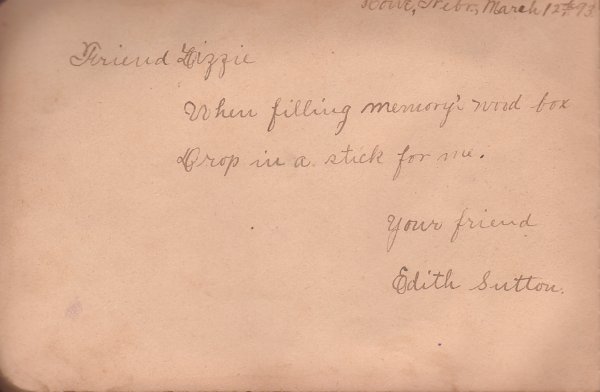 Howe, Nebr, March 12th 93
Friend Lizzie
When filling memory's wood box
Drop in a stick for me.
Your friend
Edith Sutton.